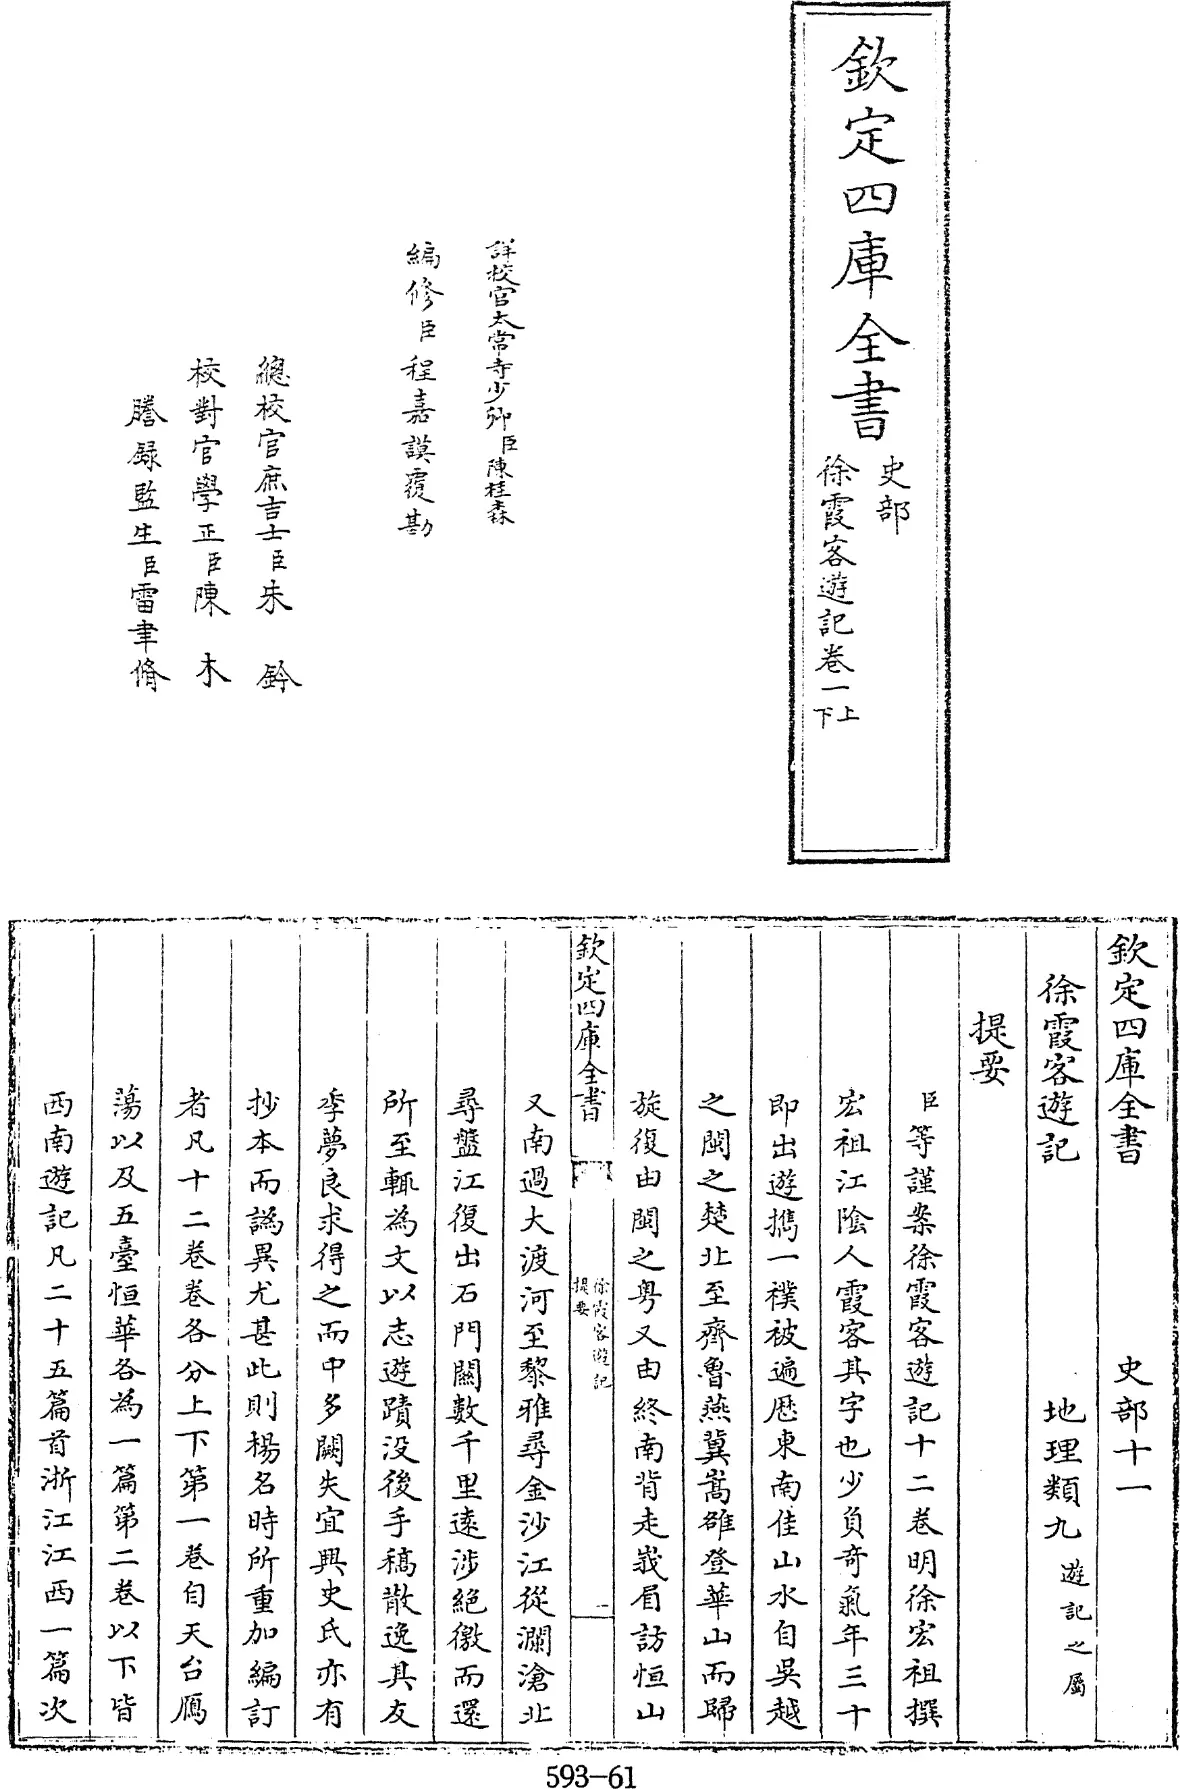 欽定四庫全書
史部
徐霞客遊記卷一上下
詳校官太常寺少卿臣陳桂森
編修臣程嘉謨覆勘
總校官庶吉士臣朱鈐
校對官學正臣陳木
謄録監生臣雷聿脩
欽定四庫全書 史部十一
徐霞客遊記 地理類九 遊記之屬
提要
臣等謹案徐霞客遊記十二卷明徐宏祖撰
宏祖江陰人霞客其字也少負奇氣年三十
即出遊擕一襆被遍歴東南佳山水自吳越
之閩之楚北至齊魯燕冀嵩雒登華山而歸
旋復由閩之粤又由終南背走峩眉訪恒山
欽定四庫全書
徐霞客遊記
提要
一
又南過大渡河至黎雅尋金沙江從瀾滄北
尋盤江復出石門關數千里遠涉絶徼而還
所至輒為文以志遊蹟没後手稿散逸其友
季夢良求得之而中多闕失宜興史氏亦有
抄本而譌異尤甚此則楊名時所重加編訂
者凡十二卷卷各分上下第一卷自天台鴈
蕩以及五臺恒華各為一篇第二卷以下皆
西南遊記凡二十五篇首浙江江西一篇次
593-61